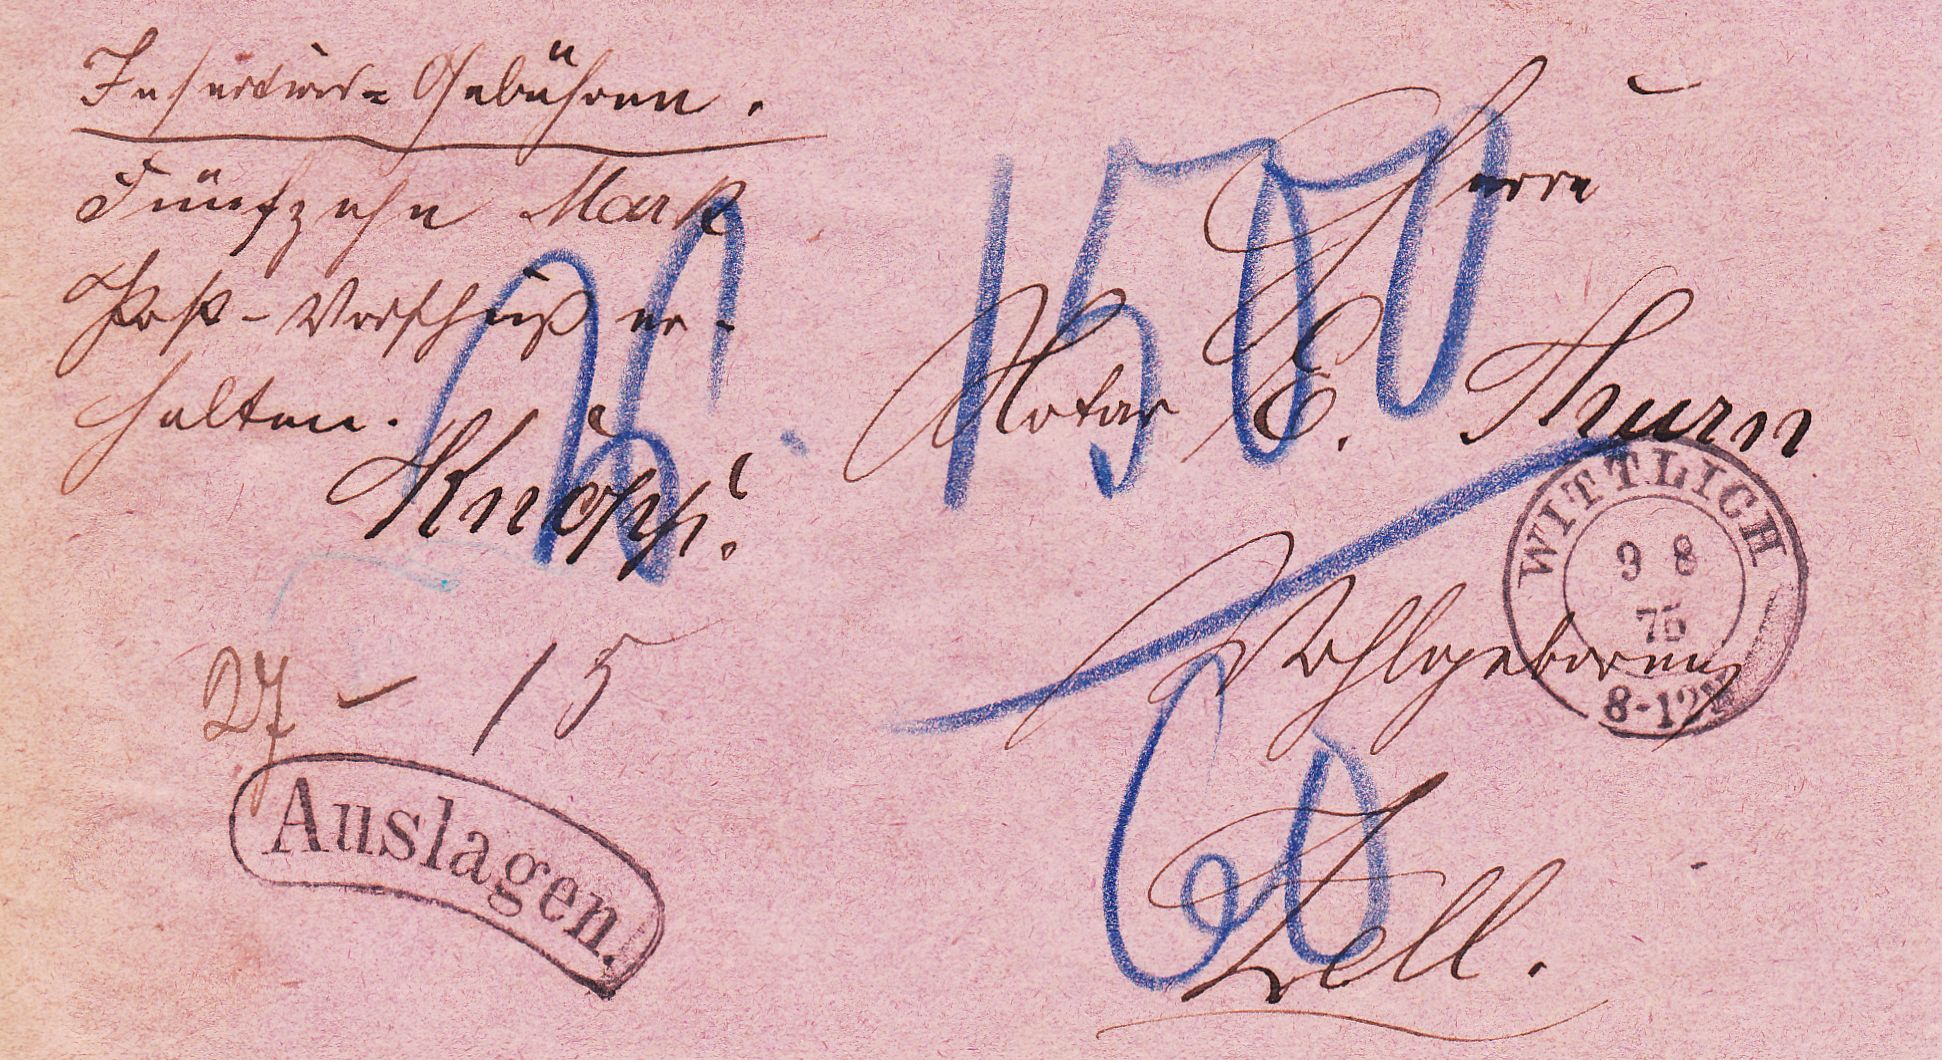 Insertions=Gebühren.
Fünfzehn Mark
Post-Vorschuß er-
halten.
Knopp.
27 - 15
Auslagen.
1500
Herrn
Notar E. Thurn
Wohlgeboren
60
Zell.
WITTLICH
9 8
75
8-12V